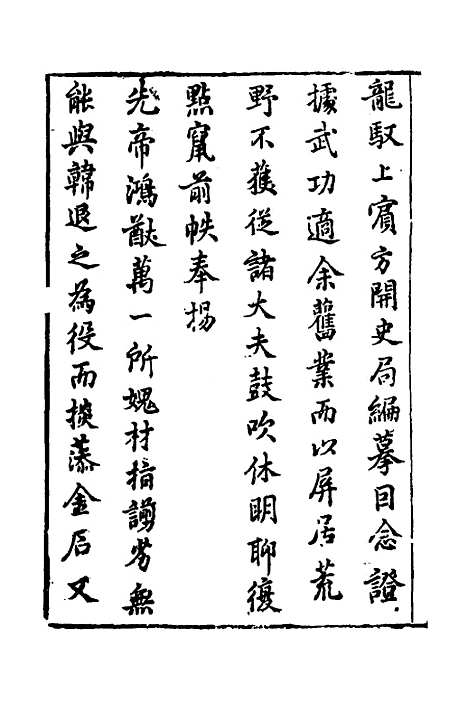 龍馭上賓方開史局編摹回念證
據武功適余舊業而以屏居荒
野不獲從諸大夫鼓吹休明聊復
點竄前帙奉揚
先帝鴻猷萬一所媿材謭劣無
能與韓退之為役而掞藻金石又